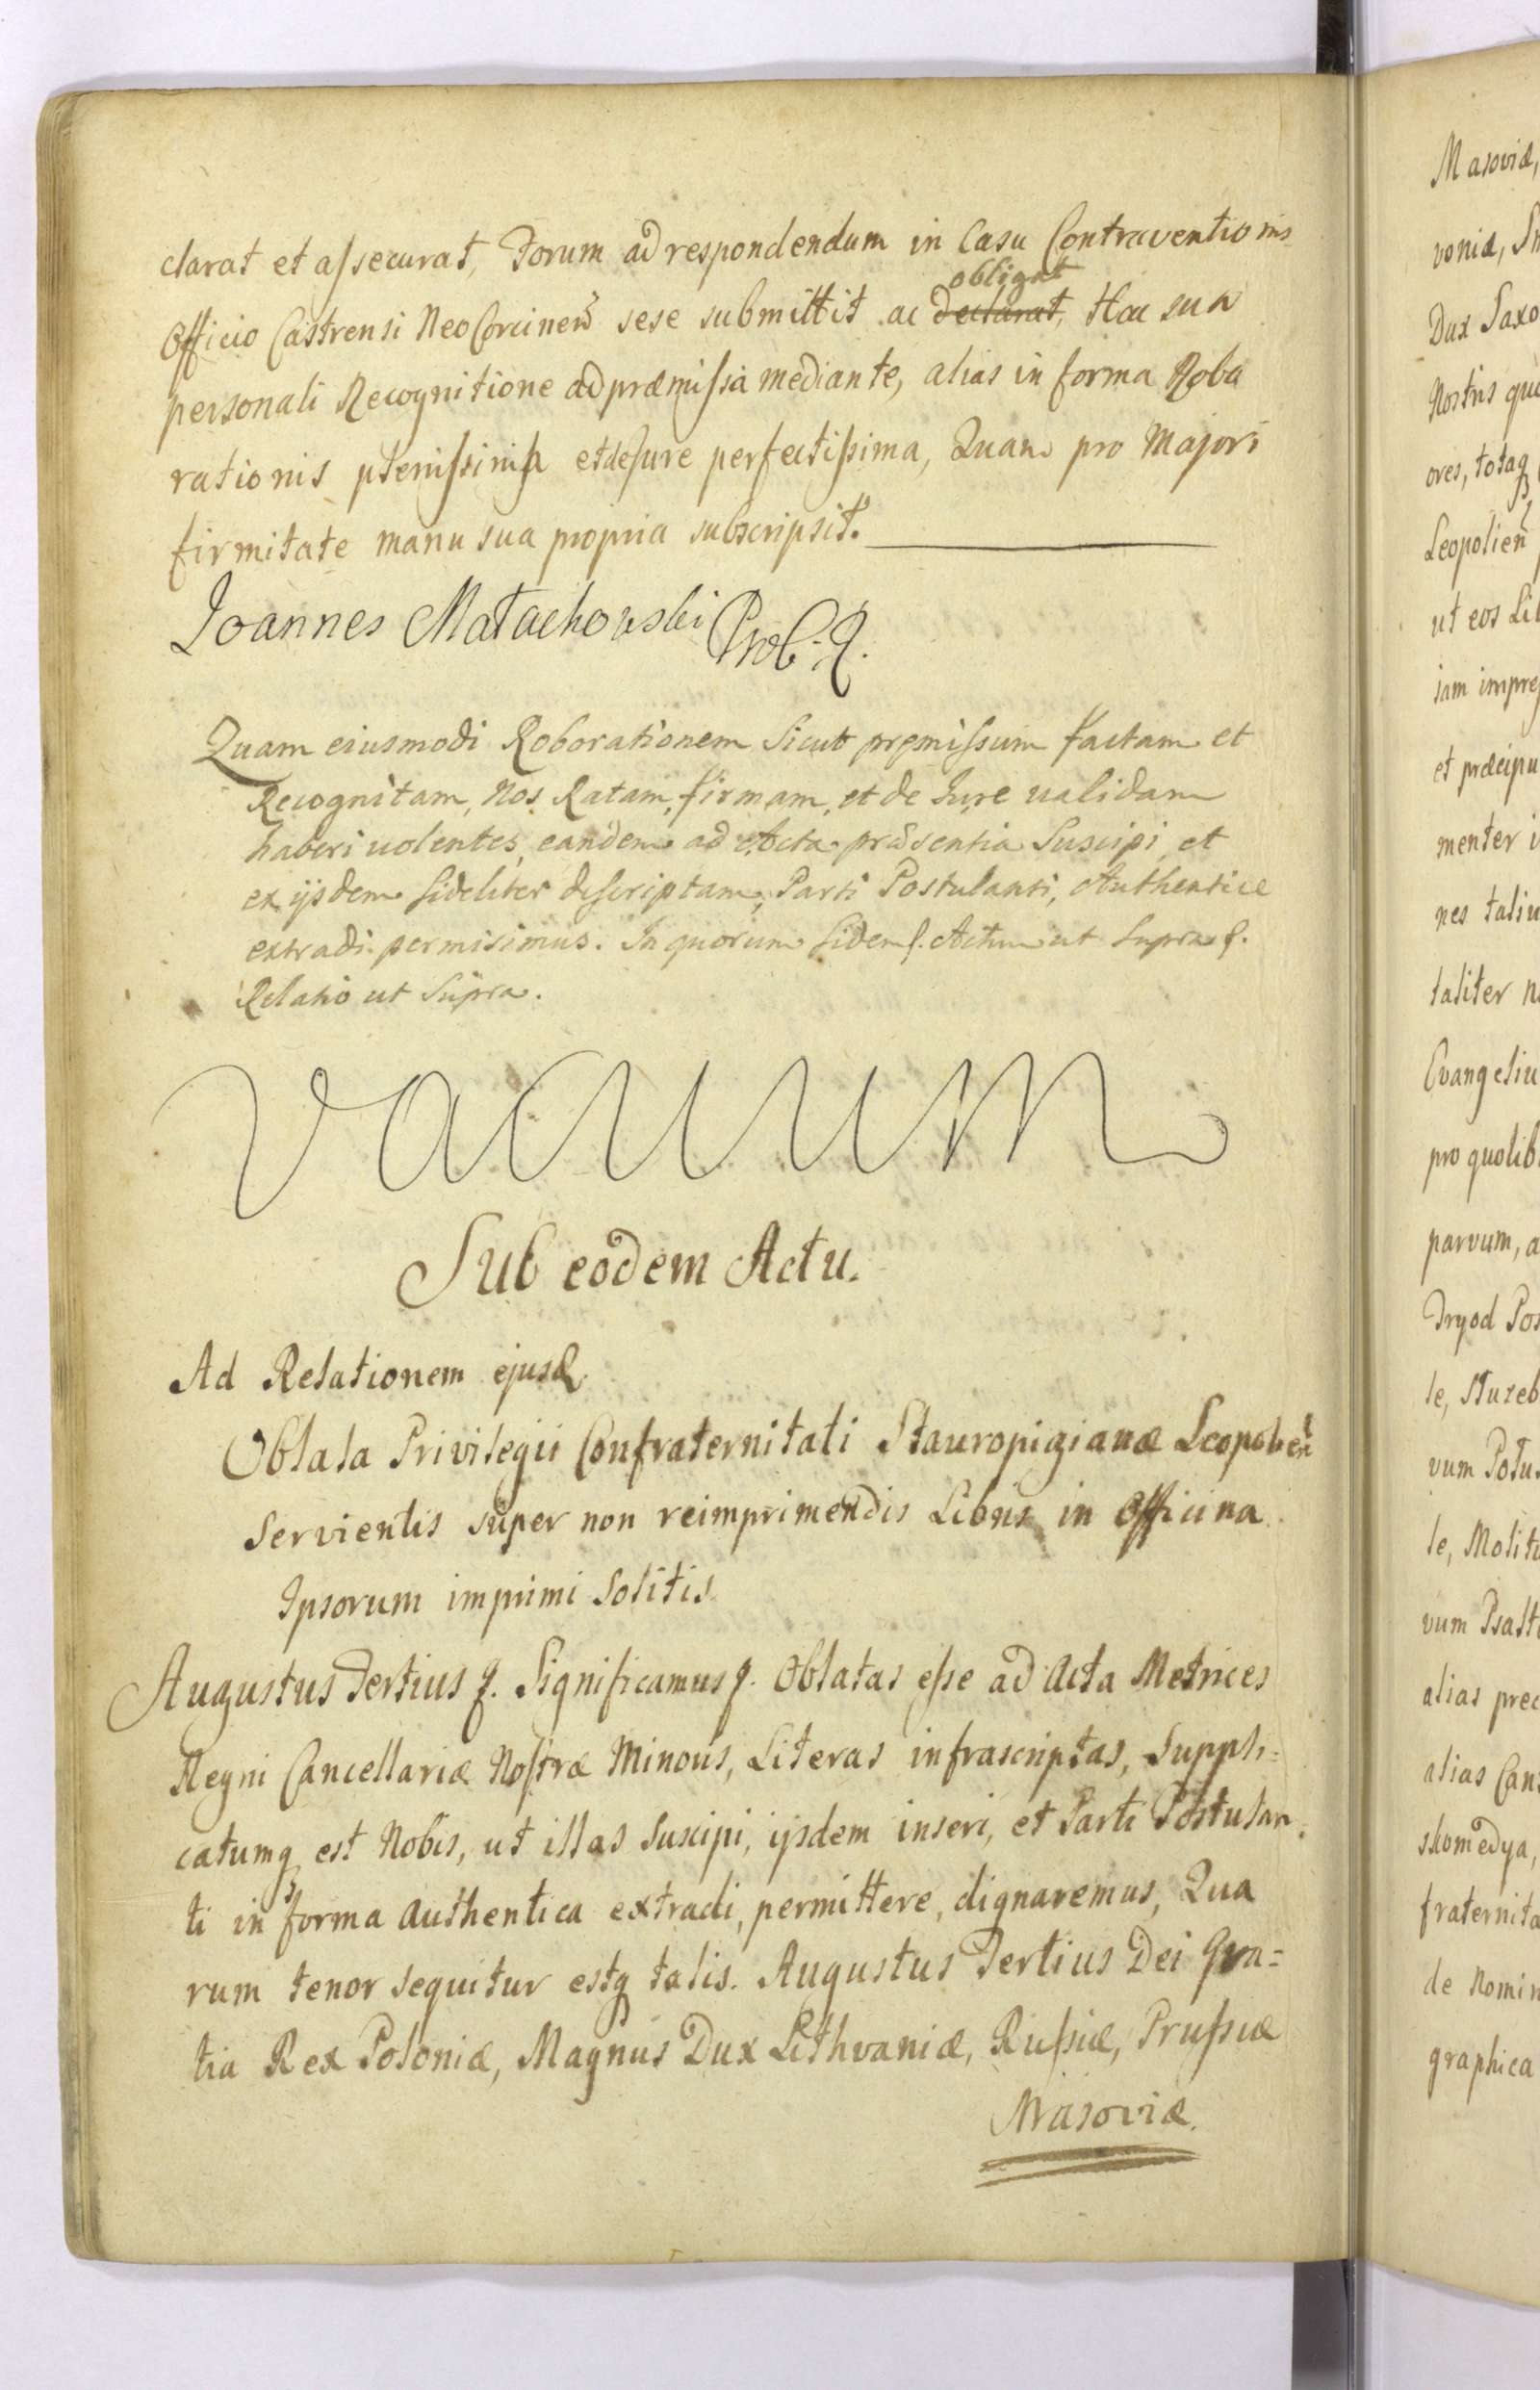 clarat et assecurat, Forum ad respondendum in Casu Contraventionis
obligat
Officio Castrensi NeoCorcinen̄ sese submittit ac declarat, Hac sua
personali Recognitione ad præmissa mediante, alias in forma Robo
rationis plenissima et de Jure perfectissima, Quam pro Majori
firmitate manu sua propria subscripsit.
Joannes Małachowski
Quam eiusmodi Roborationem sicut præmissum factam et
Recognitam, Nos Ratam, firmam, et de Jure validam
haberi uolentes, eandem ad Acta præsentia Suscipi, et
ex ijsdem fideliter descriptam, Parti Postulanti, Authentice
extradi permisimus. In quorum fidem ꝭ. Actum ut Supra ꝭ.
Relatio ut Supra.
Vacuum
Sub eodem Actu.
Ad Relationem ejusd
Oblata Privilegii Confraternitati Stauropigianæ Leopolien̄
Servientis super non reimprimendis Libris in Officina
Ipsorum imprimi Solitis
Augustus Tertius ꝭ. Significamus ꝭ. Oblatas esse ad Acta Metrices
Regni Cancellariæ Nostræ Minoris, Literas infrascriptas, Suppli=
catumq est Nobis, ut illas Suscipi, ijsdem inseri, et Parti Postulan=
ti in forma Authentica extradi, permittere, dignaremus, Qua
rum tenor sequitur estq talis. Augustus Tertius Dei Gra=
tia Rex Poloniæ, Magnus Dux Lithvaniæ, Russiæ, Prussiæ
Masoviæ.
Masoviæ,
voniæ, Sm
Dux Saxo
Nostris qu
ores, totaq
Leopolien̄
ut eos Lib
iam impre
et præcipu
menter i
nes taliu
taliter n
Evangeliu
pro quolib
parvum, a
Tryod Pos
le, Słuzeb
vum Potu
le, Molit
vum Psalt
alias prec
alias Can
skomedya,
fraternita
de Nomin
graphica